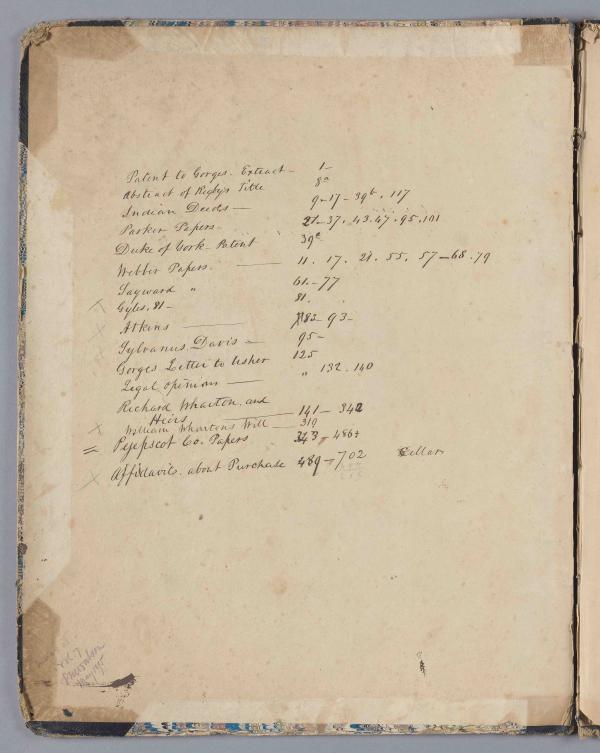 Patent to Gorges. Extract — 1 —
Abstract of Rigbys Title 8a
Indian Deeds — 9 - 17 - 39b. 117
Parker Papers. 21 - 37. 43. 47. 95. 101
Duke of York Patent 39c
Webber Papers. — 11. 17. 21. 55. 57 - 68. 79
Sayward " 61 - 77
Gyles, 81 - 81.
Atkins — 82 - 93 -
Sylvanus Davis — 95 -
Gorges Letter to Usher 125
Legal opinions — " 132. 140
Richard Wharton and
Heirs — 141 - 342
William Whartons Will — 319
Pejepscot Co. Papers 343 - 486
Affidavits about Purchase 489 - 702